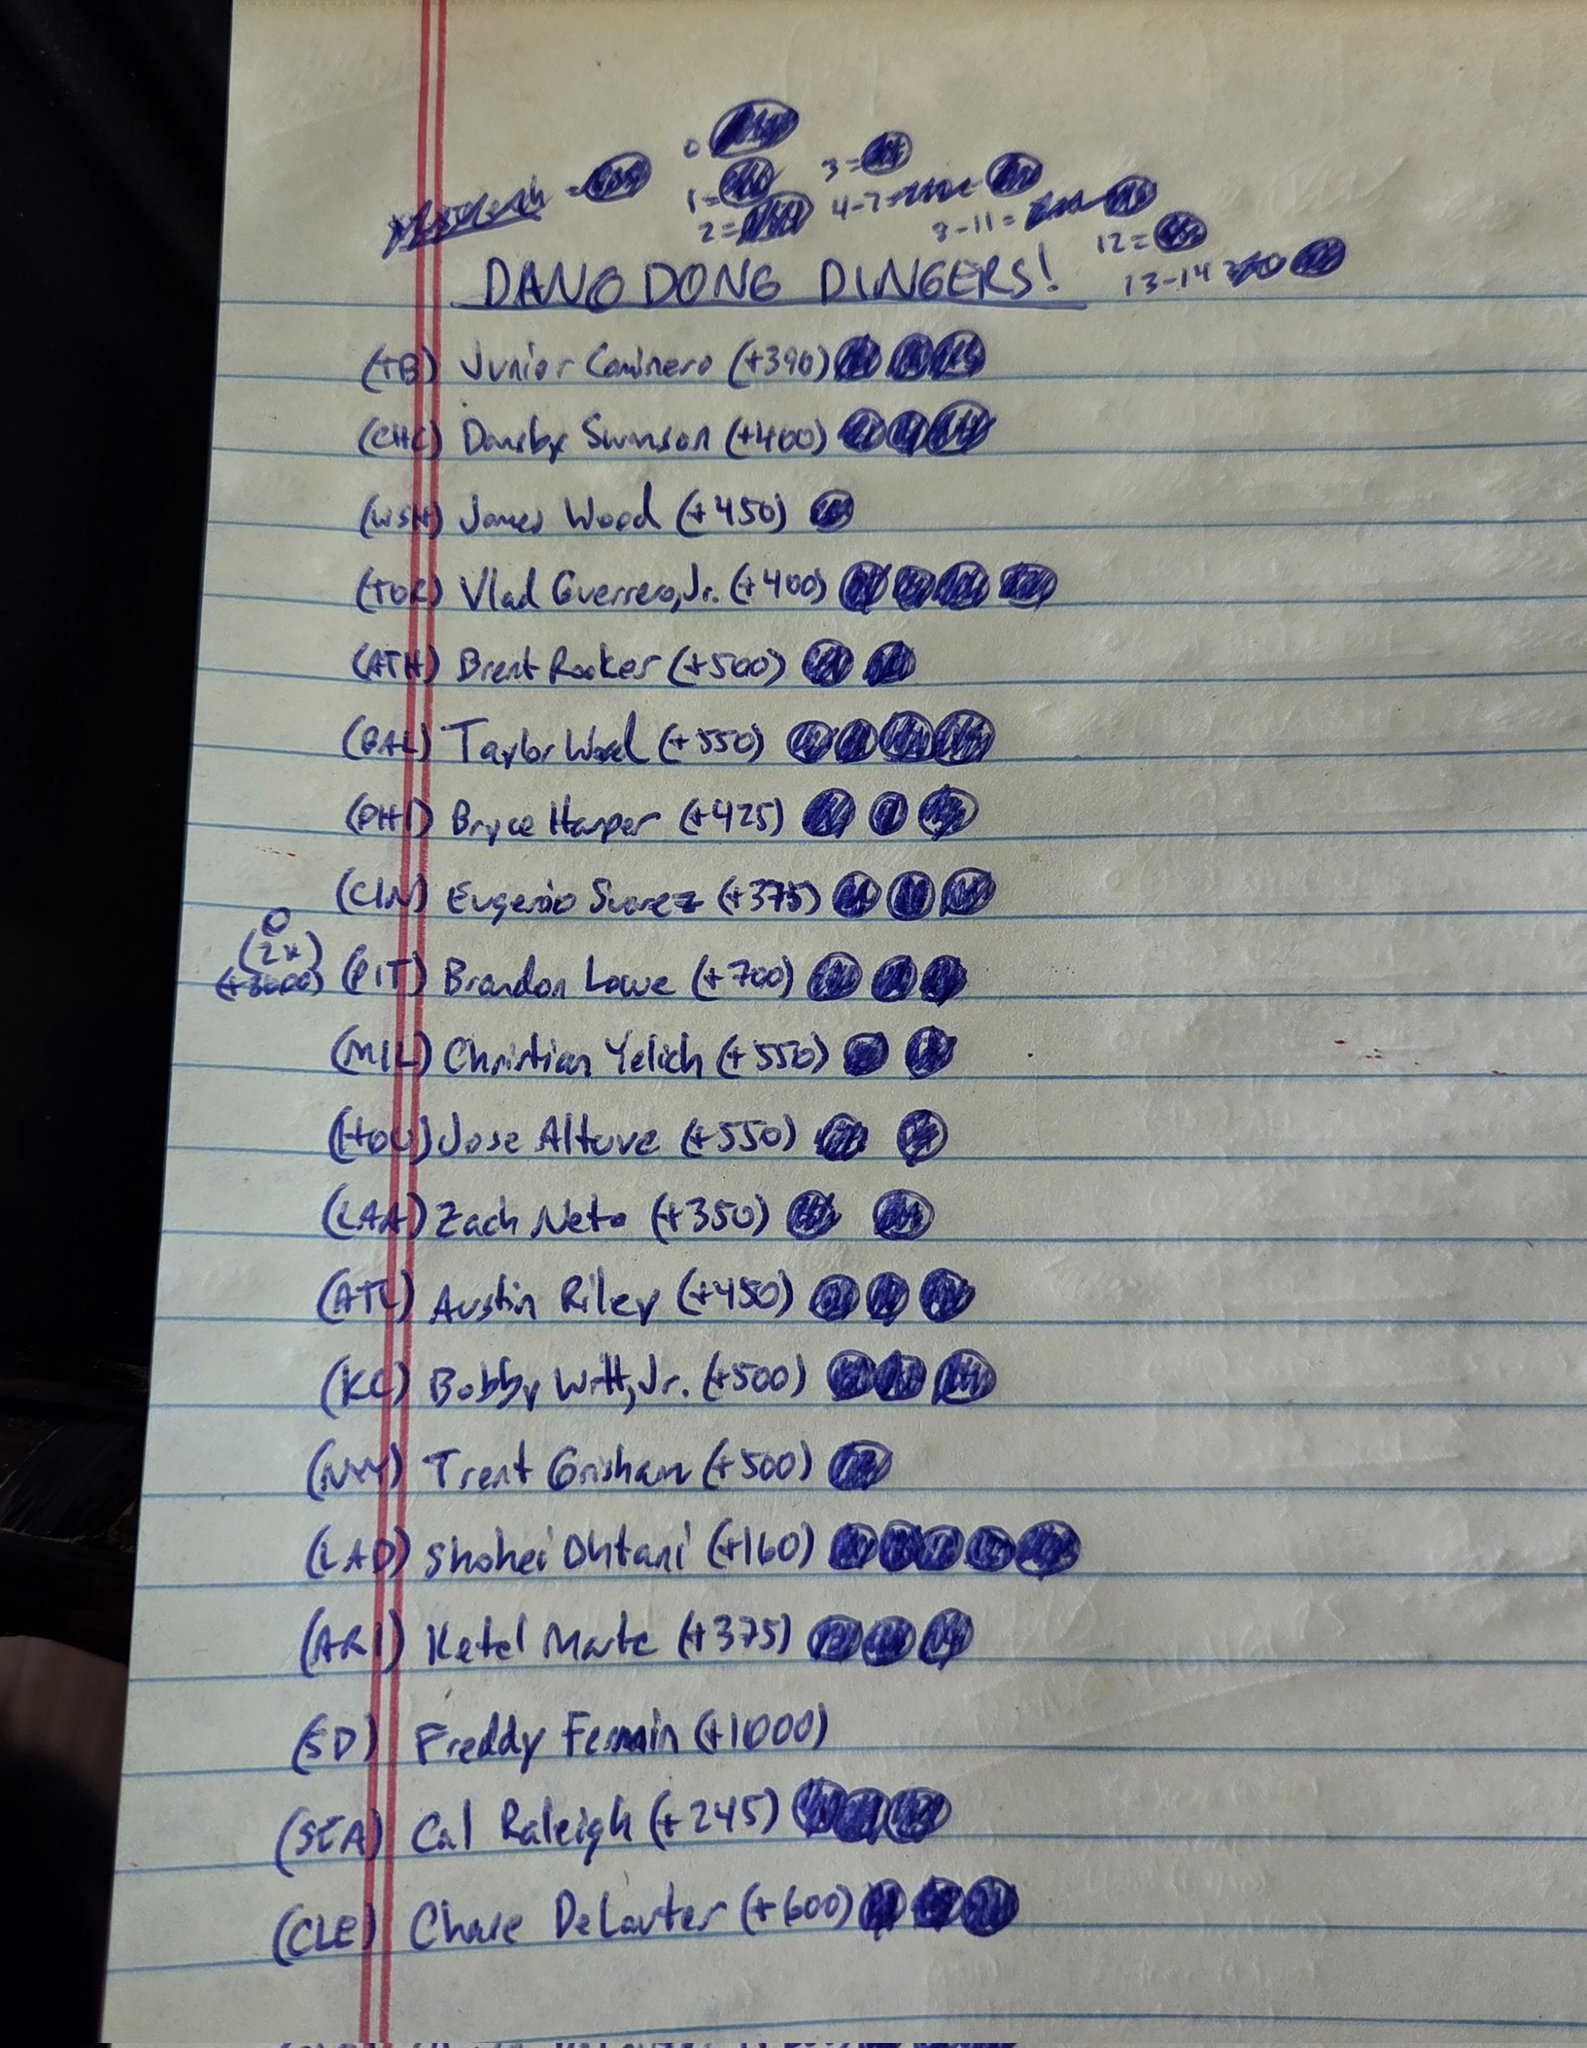 0
1=
3=
2=
4-7=
8-11=
12=
13-14
DANO DONG DINGERS!
(TB) Junior Caminero (+390)
(CHC) Dansby Swanson (+400)
(WSH) James Wood (+450)
(TOR) Vlad Guerrero, Jr. (+400)
(ATH) Brent Rooker (+500)
(BAL) Taylor Ward (+550)
(PHI) Bryce Harper (+425)
(CIN) Eugenio Suarez (+375)
0
(2x)
(+3000) (PIT) Brandon Lowe (+700)
(MIL) Christian Yelich (+550)
(HOU) Jose Altuve (+550)
(LAA) Zach Neto (+350)
(ATL) Austin Riley (+450)
(KC) Bobby Witt, Jr. (+500)
(NYY) Trent Grisham (+500)
(LAD) Shohei Ohtani (+160)
(ARI) Ketel Marte (+375)
(SD) Freddy Fermin (+1000)
(SEA) Cal Raleigh (+245)
(CLE) Chase DeLauter (+600)